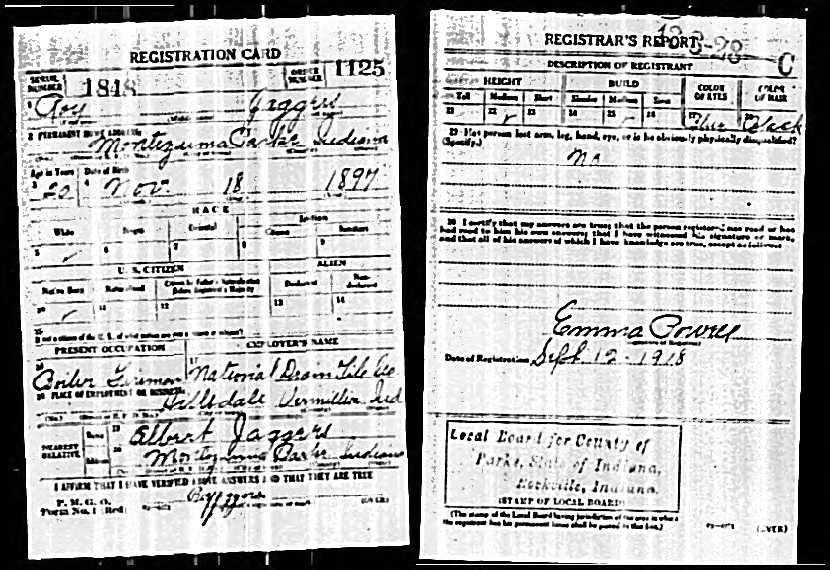 REGISTRATION CARD
SERIAL NUMBER 1848 ORDER NUMBER 1125
1 Roy Jaggers
2 PERMANENT HOME ADDRESS
Montezuma Parke Indiana
Age in Years Date of Birth
3 20 4 Nov. 18 1897
RACE
White Negro Oriental Indian
Citizen Noncitizen
5 ✓ 6 7 8 9
U. S. CITIZEN ALIEN
Native Born Naturalized Citizen by Father's Naturalization Before Registrant's Majority Declarant Non-declarant
10 ✓ 11 12 13 14
15
If not a citizen of the U. S., of what nation are you a citizen or subject?
PRESENT OCCUPATION EMPLOYER'S NAME
16 17
Boiler Fireman National Drain Tile Co
18 PLACE OF EMPLOYMENT OR BUSINESS
Hillsdale Vermillion Ind
NEAREST RELATIVE Name 19 Albert Jaggers
Address 20 Montezuma Parke Indiana
I AFFIRM THAT I HAVE VERIFIED ABOVE ANSWERS AND THAT THEY ARE TRUE
P. M. G. O.
Form No. 1 (Red) Roy Jaggers (OVER)
REGISTRAR'S REPORT
C
DESCRIPTION OF REGISTRANT
HEIGHT BUILD COLOR OF EYES COLOR OF HAIR
Tall Medium Short Slender Medium Stout
21 22 ✓ 23 24 25 ✓ 26 27 Blue 28 Black
29 Has person lost arm, leg, hand, eye, or is he obviously physically disqualified?
(Specify.)
No
30 I certify that my answers are true; that the person registered has read or has
had read to him his own answers; that I have witnessed his signature or mark,
and that all of his answers of which I have knowledge are true, except as follows:
Emma Powell
(Signature of Registrar)
Date of Registration Sept 12 - 1918
Local Board for County of
Parke, State of Indiana,
Rockville, Indiana.
(STAMP OF LOCAL BOARD)
(The stamp of the Local Board having jurisdiction of the area in which
the registrant has his permanent home shall be placed in this box.)
(OVER)